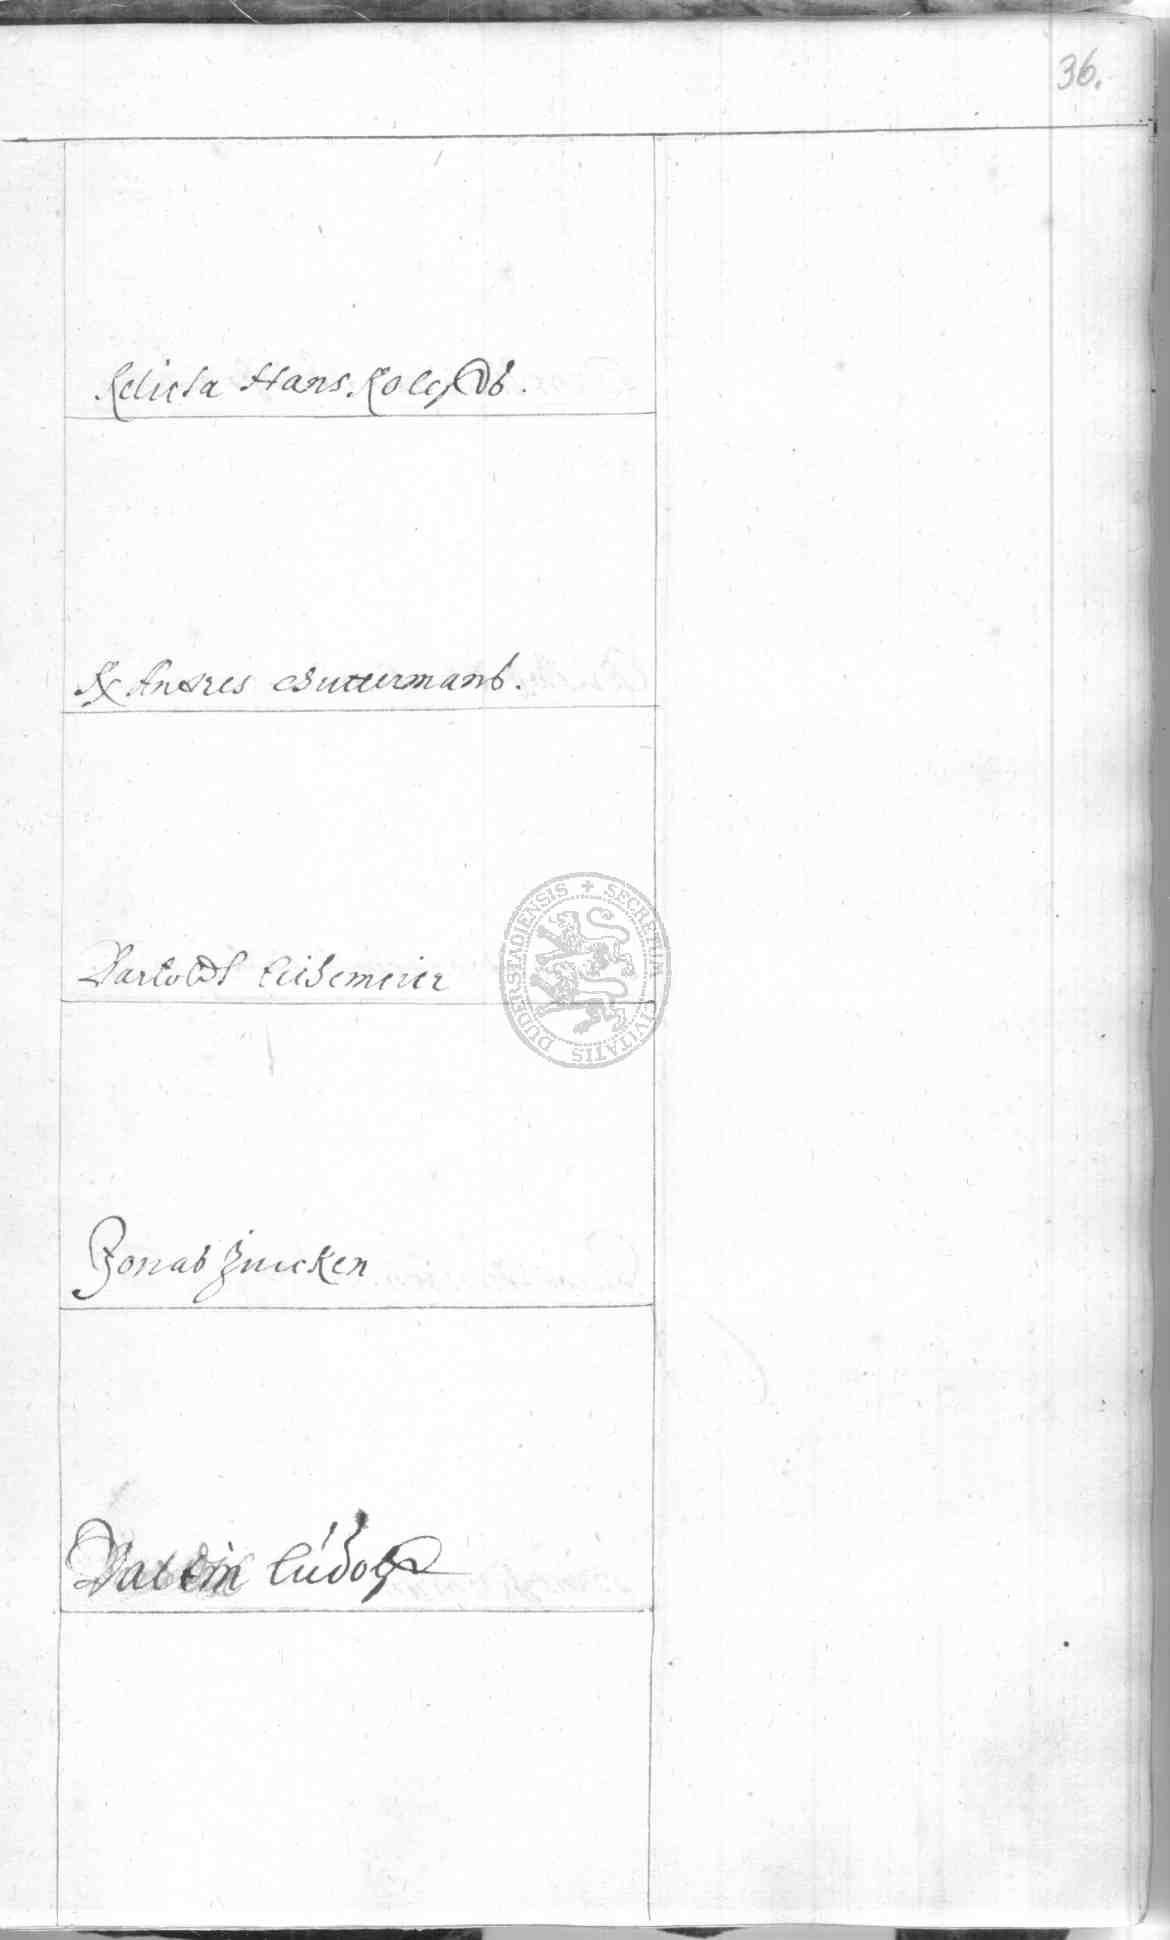 36.
Relicta Hans
Rx Andres Buttermans.
Bartoldt Leisemeier
Jonas Zuicken
Valtin Ludolf
SECRETUM CIVITATIS DUDERSTADIENSIS